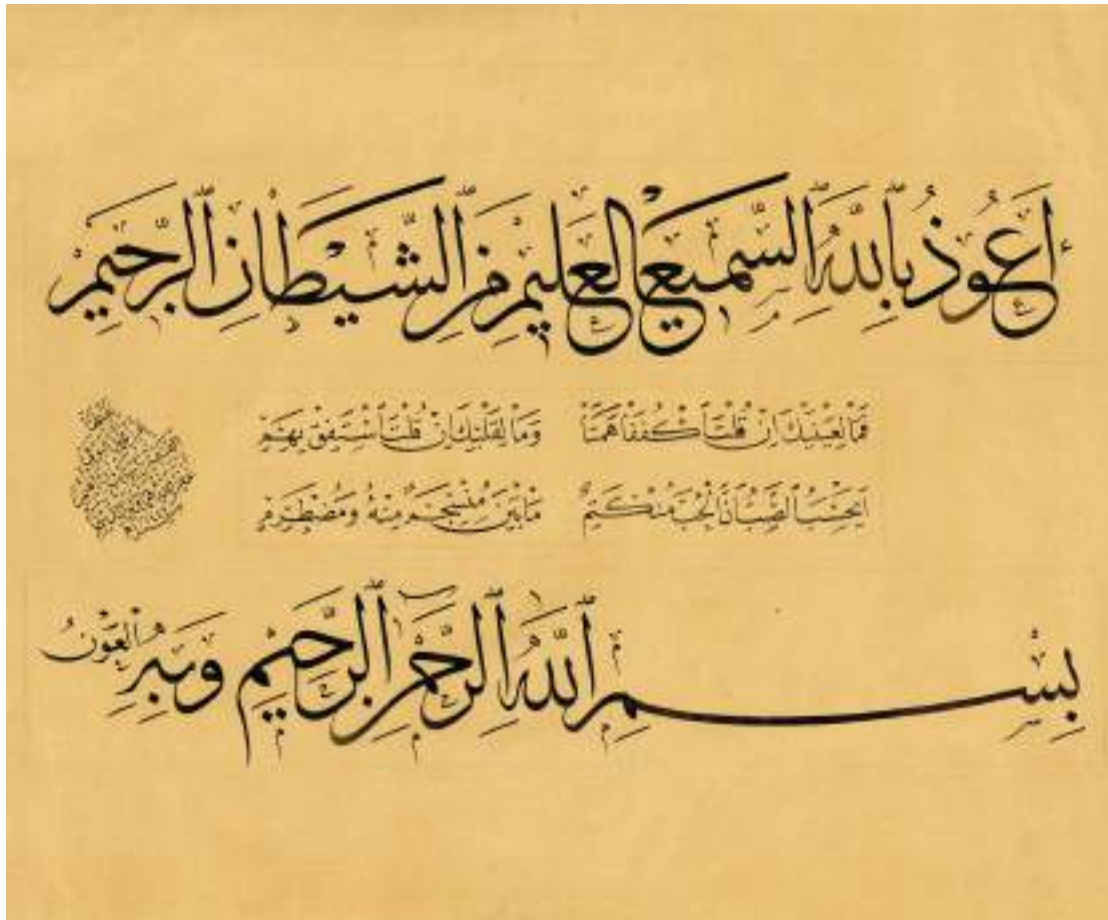 أَعُوذُ بِاللَّهِ السَّمِيعِ الْعَلِيمِ مِنَ الشَّيْطَانِ الرَّجِيمِ
فَمَا لِعَيْنَيْكَ إِنْ قُلْتَ اكْفُفَا هَمَتَا وَمَا لِقَلْبِكَ إِنْ قُلْتَ اسْتَفِقْ يَهِمِ
أَيَحْسَبُ الصَّبُّ أَنَّ الْحُبَّ مُنْكَتِمٌ مَا بَيْنَ مُنْسَجِمٍ مِنْهُ وَمُضْطَرِمِ
بِسْمِ اللَّهِ الرَّحْمَنِ الرَّحِيمِ وَبِهِ الْعَوْنُ